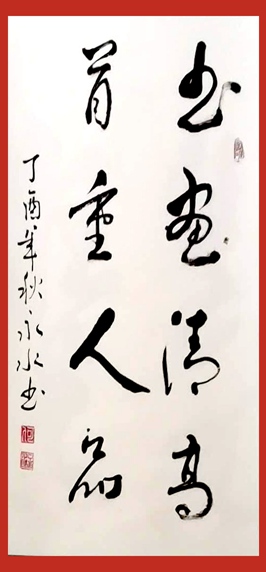 书画清高
首重人品
丁酉年秋永水书